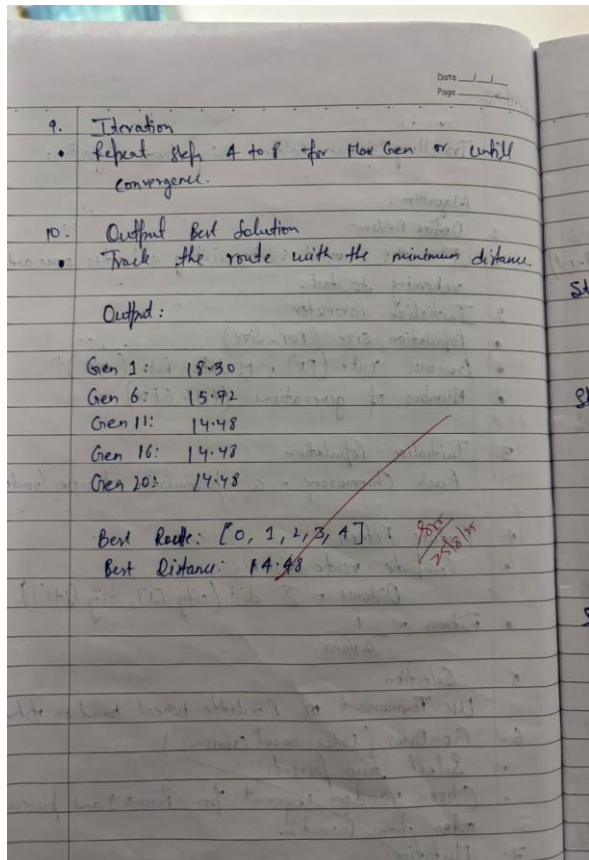 Date __/__/__
Page
9. Iteration
• Repeat steps 4 to 8 for Max Gen or untill
convergence.
10. Output Best Solution
• Track the route with the minimum distance.
Output:
Gen 1: 18.30
Gen 6: 15.72
Gen 11: 14.48
Gen 16: 14.48
Gen 20: 14.48
Best Route: [0, 1, 2, 3, 4]
Best Distance: 14.48
25/8/25